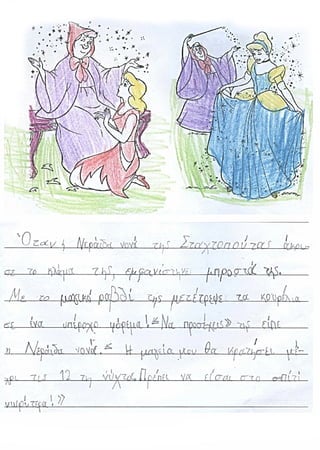 Όταν η Νεράιδα νονά της Σταχτοπούτας άκου
σε το κλάμα της, εμφανίστηκε μπροστά της.
Με το μαγικό ραβδί της μετέτρεψε τα κουρέλια
σε ένα υπέροχο φόρεμα! «Να προσέχεις» της είπε
η Νεράιδα νονά. « Η μαγεία μου θα κρατήσει μέ-
χρι τις 12 τη νύχτα. Πρέπει να είσαι στο σπίτι
νωρίτερα!»